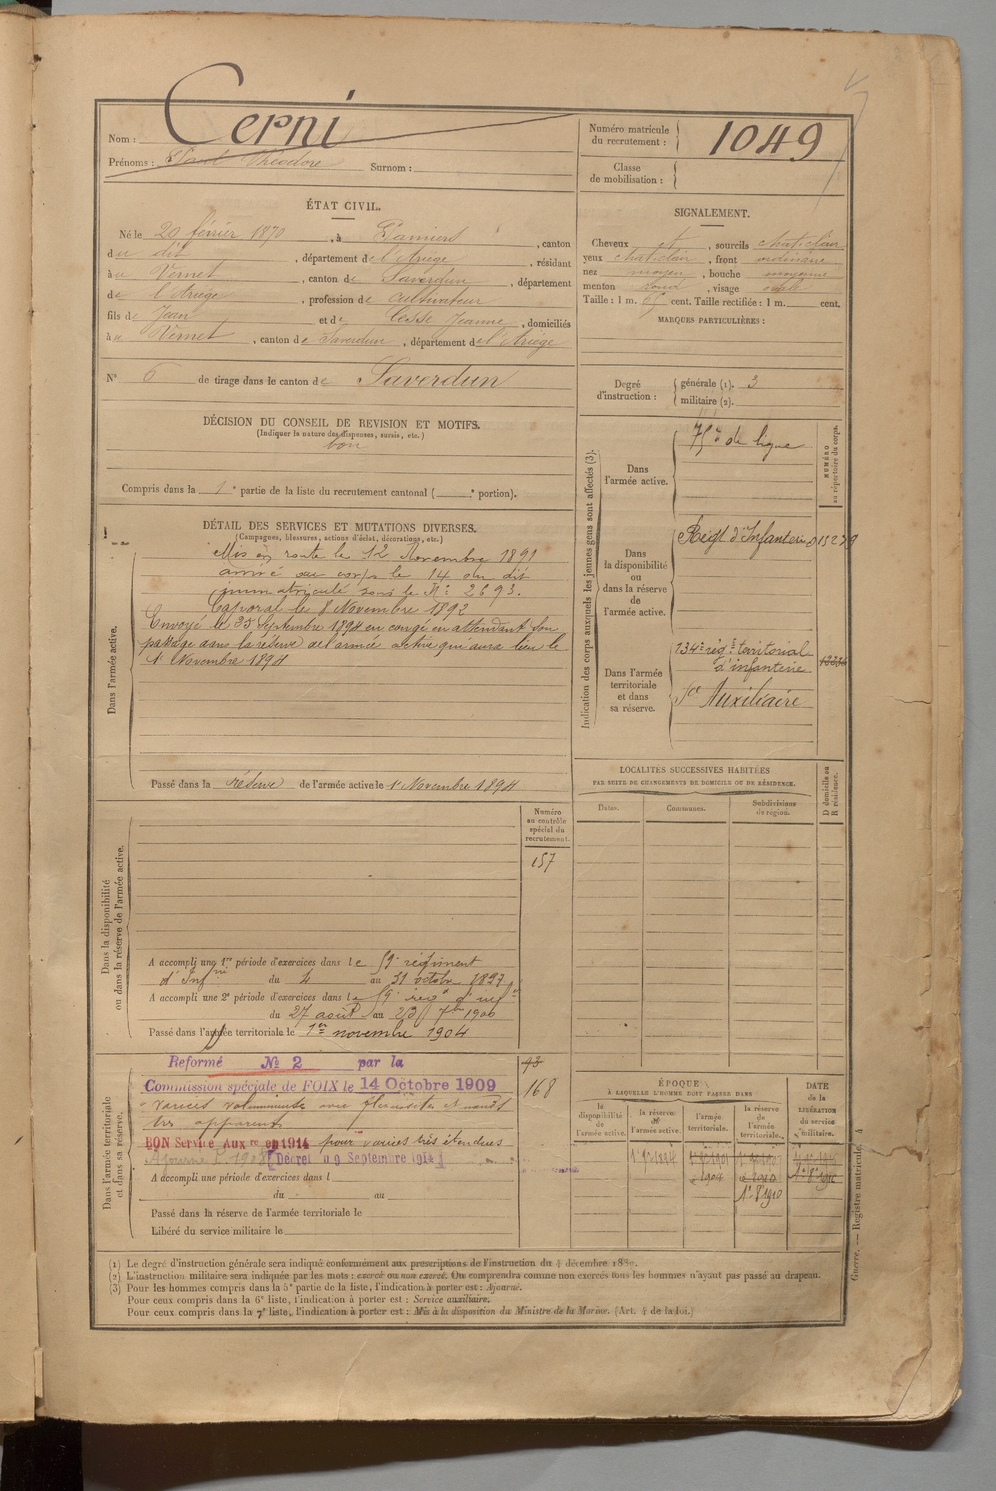 Nom : Cerni
Prénoms : Paul Théodore Surnom :
Numéro matricule du recrutement : 1049
Classe de mobilisation :
ÉTAT CIVIL.
Né le 20 février 1870, à Pamiers, canton
du dit, département de l'Ariège, résidant
à u Vernet, canton de Saverdun, département
de l'Ariège, profession de cultivateur
fils de Jean et de Jeanne, domiciliés
à u Vernet, canton de Saverdun, département de l'Ariège
N° 6 de tirage dans le canton de Saverdun
SIGNALEMENT.
Cheveux et, sourcils chat. clair
yeux chat. clair, front ordinaire
nez moyen, bouche moyenne
menton rond, visage ovale
Taille : 1 m. 65 cent. Taille rectifiée : 1 m. cent.
MARQUES PARTICULIÈRES :
Degré d'instruction : générale (1). 3
militaire (2).
DÉCISION DU CONSEIL DE REVISION ET MOTIFS.
(Indiquer la nature des dispenses, sursis, etc.)
bon
Compris dans la 1e partie de la liste du recrutement cantonal ( e portion).
DÉTAIL DES SERVICES ET MUTATIONS DIVERSES.
(Campagnes, blessures, actions d'éclat, décorations, etc.)
Dans l'armée active.
Mis en route le 12 Novembre 1891
arrivé au corps le 14 du dit
immatriculé sous le N° 2693.
Caporal le 8 Novembre 1892
Envoyé le 25 Septembre 1894 en congé en attendant son
passage dans la réserve de l'armée active qui aura lieu le
1er Novembre 1894
Passé dans la réserve de l'armée active le 1er Novembre 1894
Indication des corps auxquels les jeunes gens sont affectés (3).
NUMÉRO au répertoire du corps.
Dans l'armée active.
75e de ligne
Dans la disponibilité ou dans la réserve de l'armée active.
Régt d'Infanterie 015279
Dans l'armée territoriale et dans sa réserve.
134e régt territorial
d'infanterie
Sce Auxiliaire
LOCALITÉS SUCCESSIVES HABITÉES
PAR SUITE DE CHANGEMENTS DE DOMICILE OU DE RÉSIDENCE.
D domicile ou R résidence.
Dates. Communes. Subdivisions de région.
Numéro au contrôle spécial du recrutement.
157
Dans la disponibilité ou dans la réserve de l'armée active.
A accompli une 1re période d'exercices dans le 59e régiment
d'Infrie du 4 au 31 octobre 1897
A accompli une 2e période d'exercices dans le 59e reg. d'inf.
du 27 août au 23 7bre 1900
Passé dans l'armée territoriale le 1er novembre 1904
Dans l'armée territoriale et dans sa réserve.
Reformé N° 2 par la
Commission spéciale de FOIX le 14 Octobre 1909
varices volumineuses avec flexuosités et nœuds
très apparents
BON Service Auxre en 1914 pour varices très étendues
[Décret du 9 Septembre 1914]
A accompli une période d'exercices dans l
du au
Passé dans la réserve de l'armée territoriale le
Libéré du service militaire le
168
ÉPOQUE
À LAQUELLE L'HOMME DOIT PASSER DANS
la disponibilité de l'armée active.
la réserve de l'armée active.
l'armée territoriale.
la réserve de l'armée territoriale.
DATE de la LIBÉRATION du service militaire.
1904
1er 8 1910
Guerre. — Registre matricule. 4
(1) Le degré d'instruction générale sera indiqué conformément aux prescriptions de l'instruction du 4 décembre 1889.
(2) L'instruction militaire sera indiquée par les mots : exercé ou non exercé. On comprendra comme non exercés tous les hommes n'ayant pas passé au drapeau.
(3) Pour les hommes compris dans la 5e partie de la liste, l'indication à porter est : Ajourné.
Pour ceux compris dans la 6e liste, l'indication à porter est : Service auxiliaire.
Pour ceux compris dans la 7e liste, l'indication à porter est : Mis à la disposition du Ministre de la Marine. (Art. 4 de la loi.)